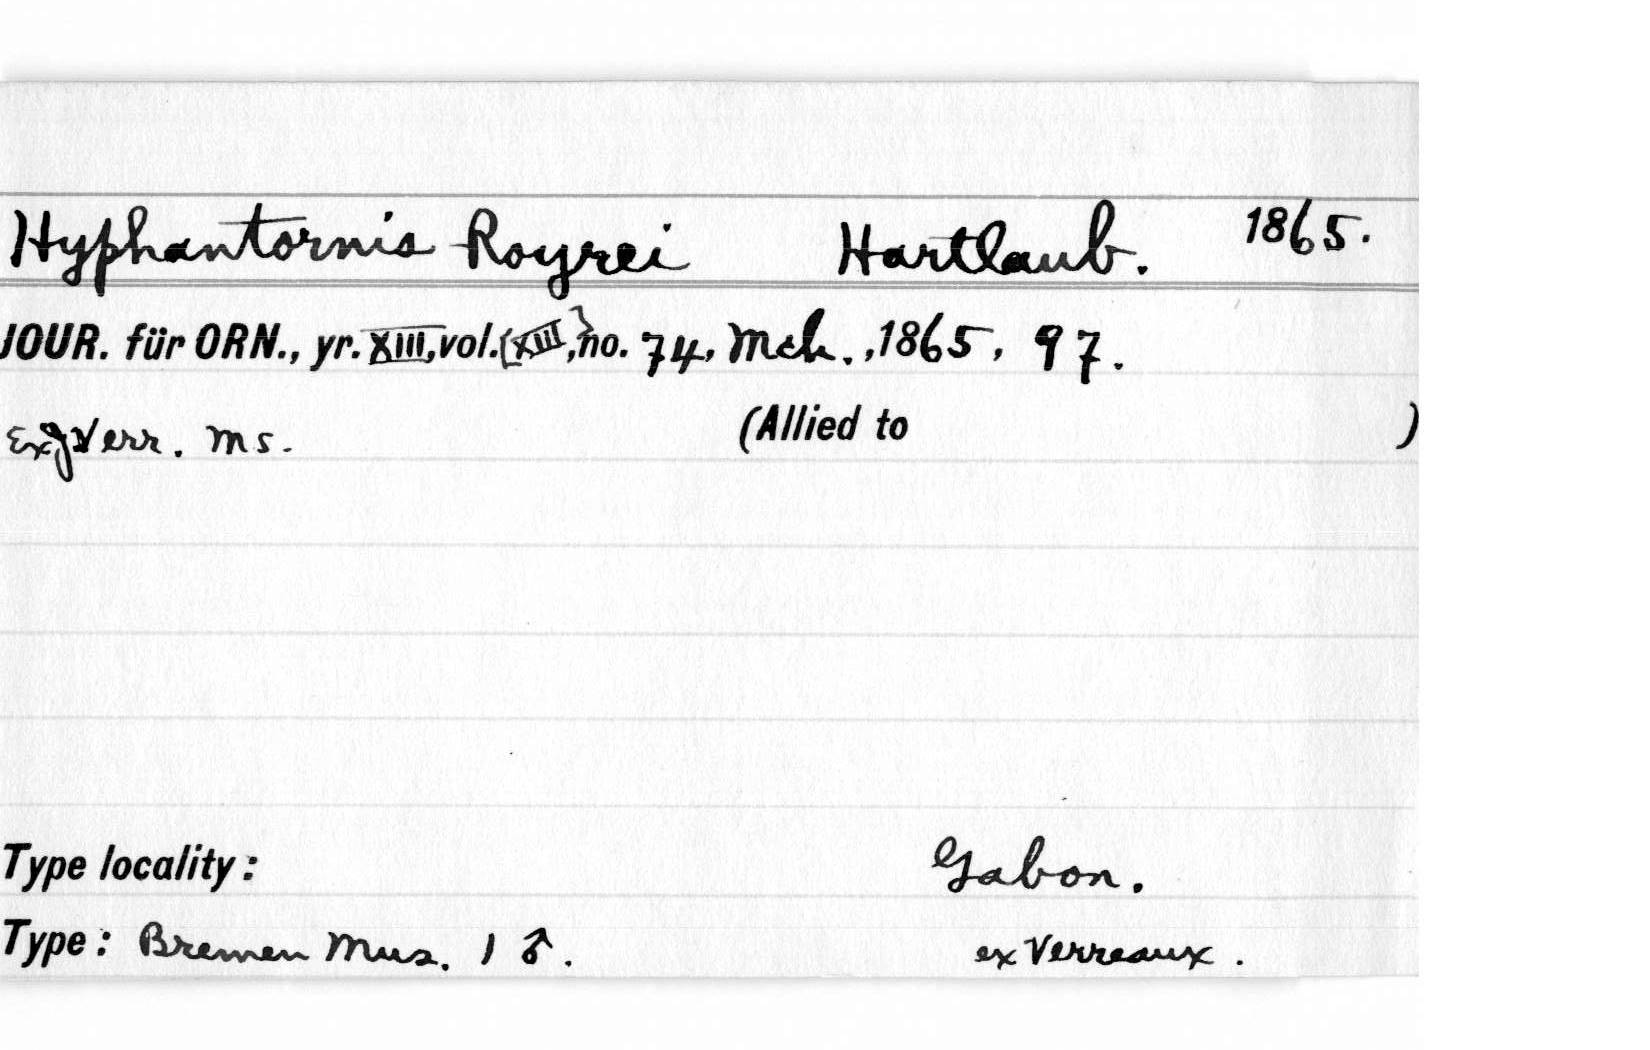 Hyphantornis Royrei Hartlaub. 1865.
JOUR. für ORN., yr. XIII, vol. {XIII,} no. 74, Mch., 1865, 97.
Ex J Verr. Ms. (Allied to )
Type locality: Gabon.
Type: Bremen Mus. 1 ♂. ex Verreaux.